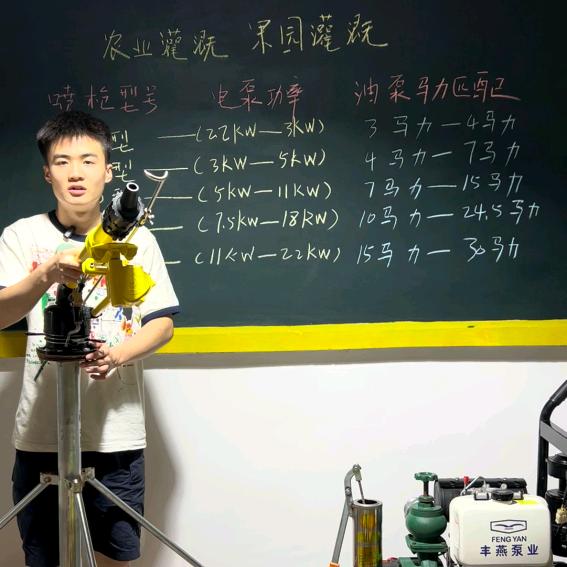 农业灌溉 果园灌溉
喷枪型号 电泵功率 油泵马力匹配
型 —(2.2KW—3KW) 3马力—4马力
型 —(3KW—5KW) 4马力—7马力
(5KW—11KW) 7马力—15马力
(7.5KW—18KW) 10马力—24.5马力
—(11KW—22KW) 15马力—30马力
FENG YAN
丰燕泵业